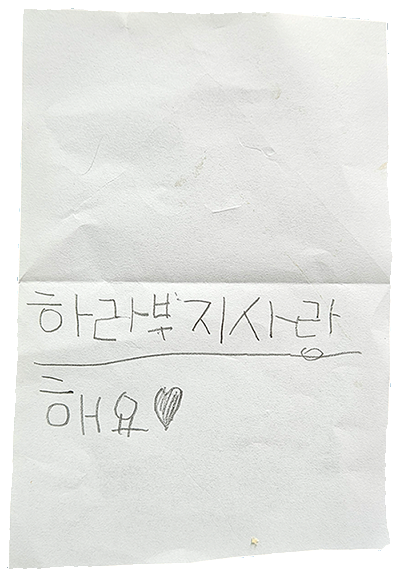 하라부지사랑
해요♥